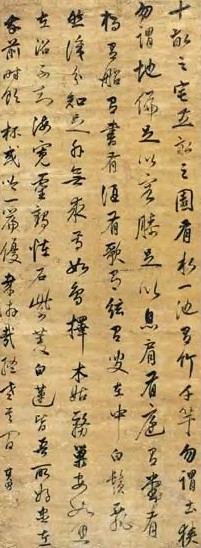 十畝之宅五畝之園有水一池有竹千竿勿謂土狹
勿謂地偏足以容膝足以息肩有庭有堂有
橋有船有書有酒有歌有弦有叟在中白鬚飄
然識分知足外無求焉如鳥擇木姑務巢安如龜
在沼不知海寬靈鶴怪石紫菱白蓮皆吾所好盡在
吾前時飲一杯或吟一篇優哉游哉終老其間